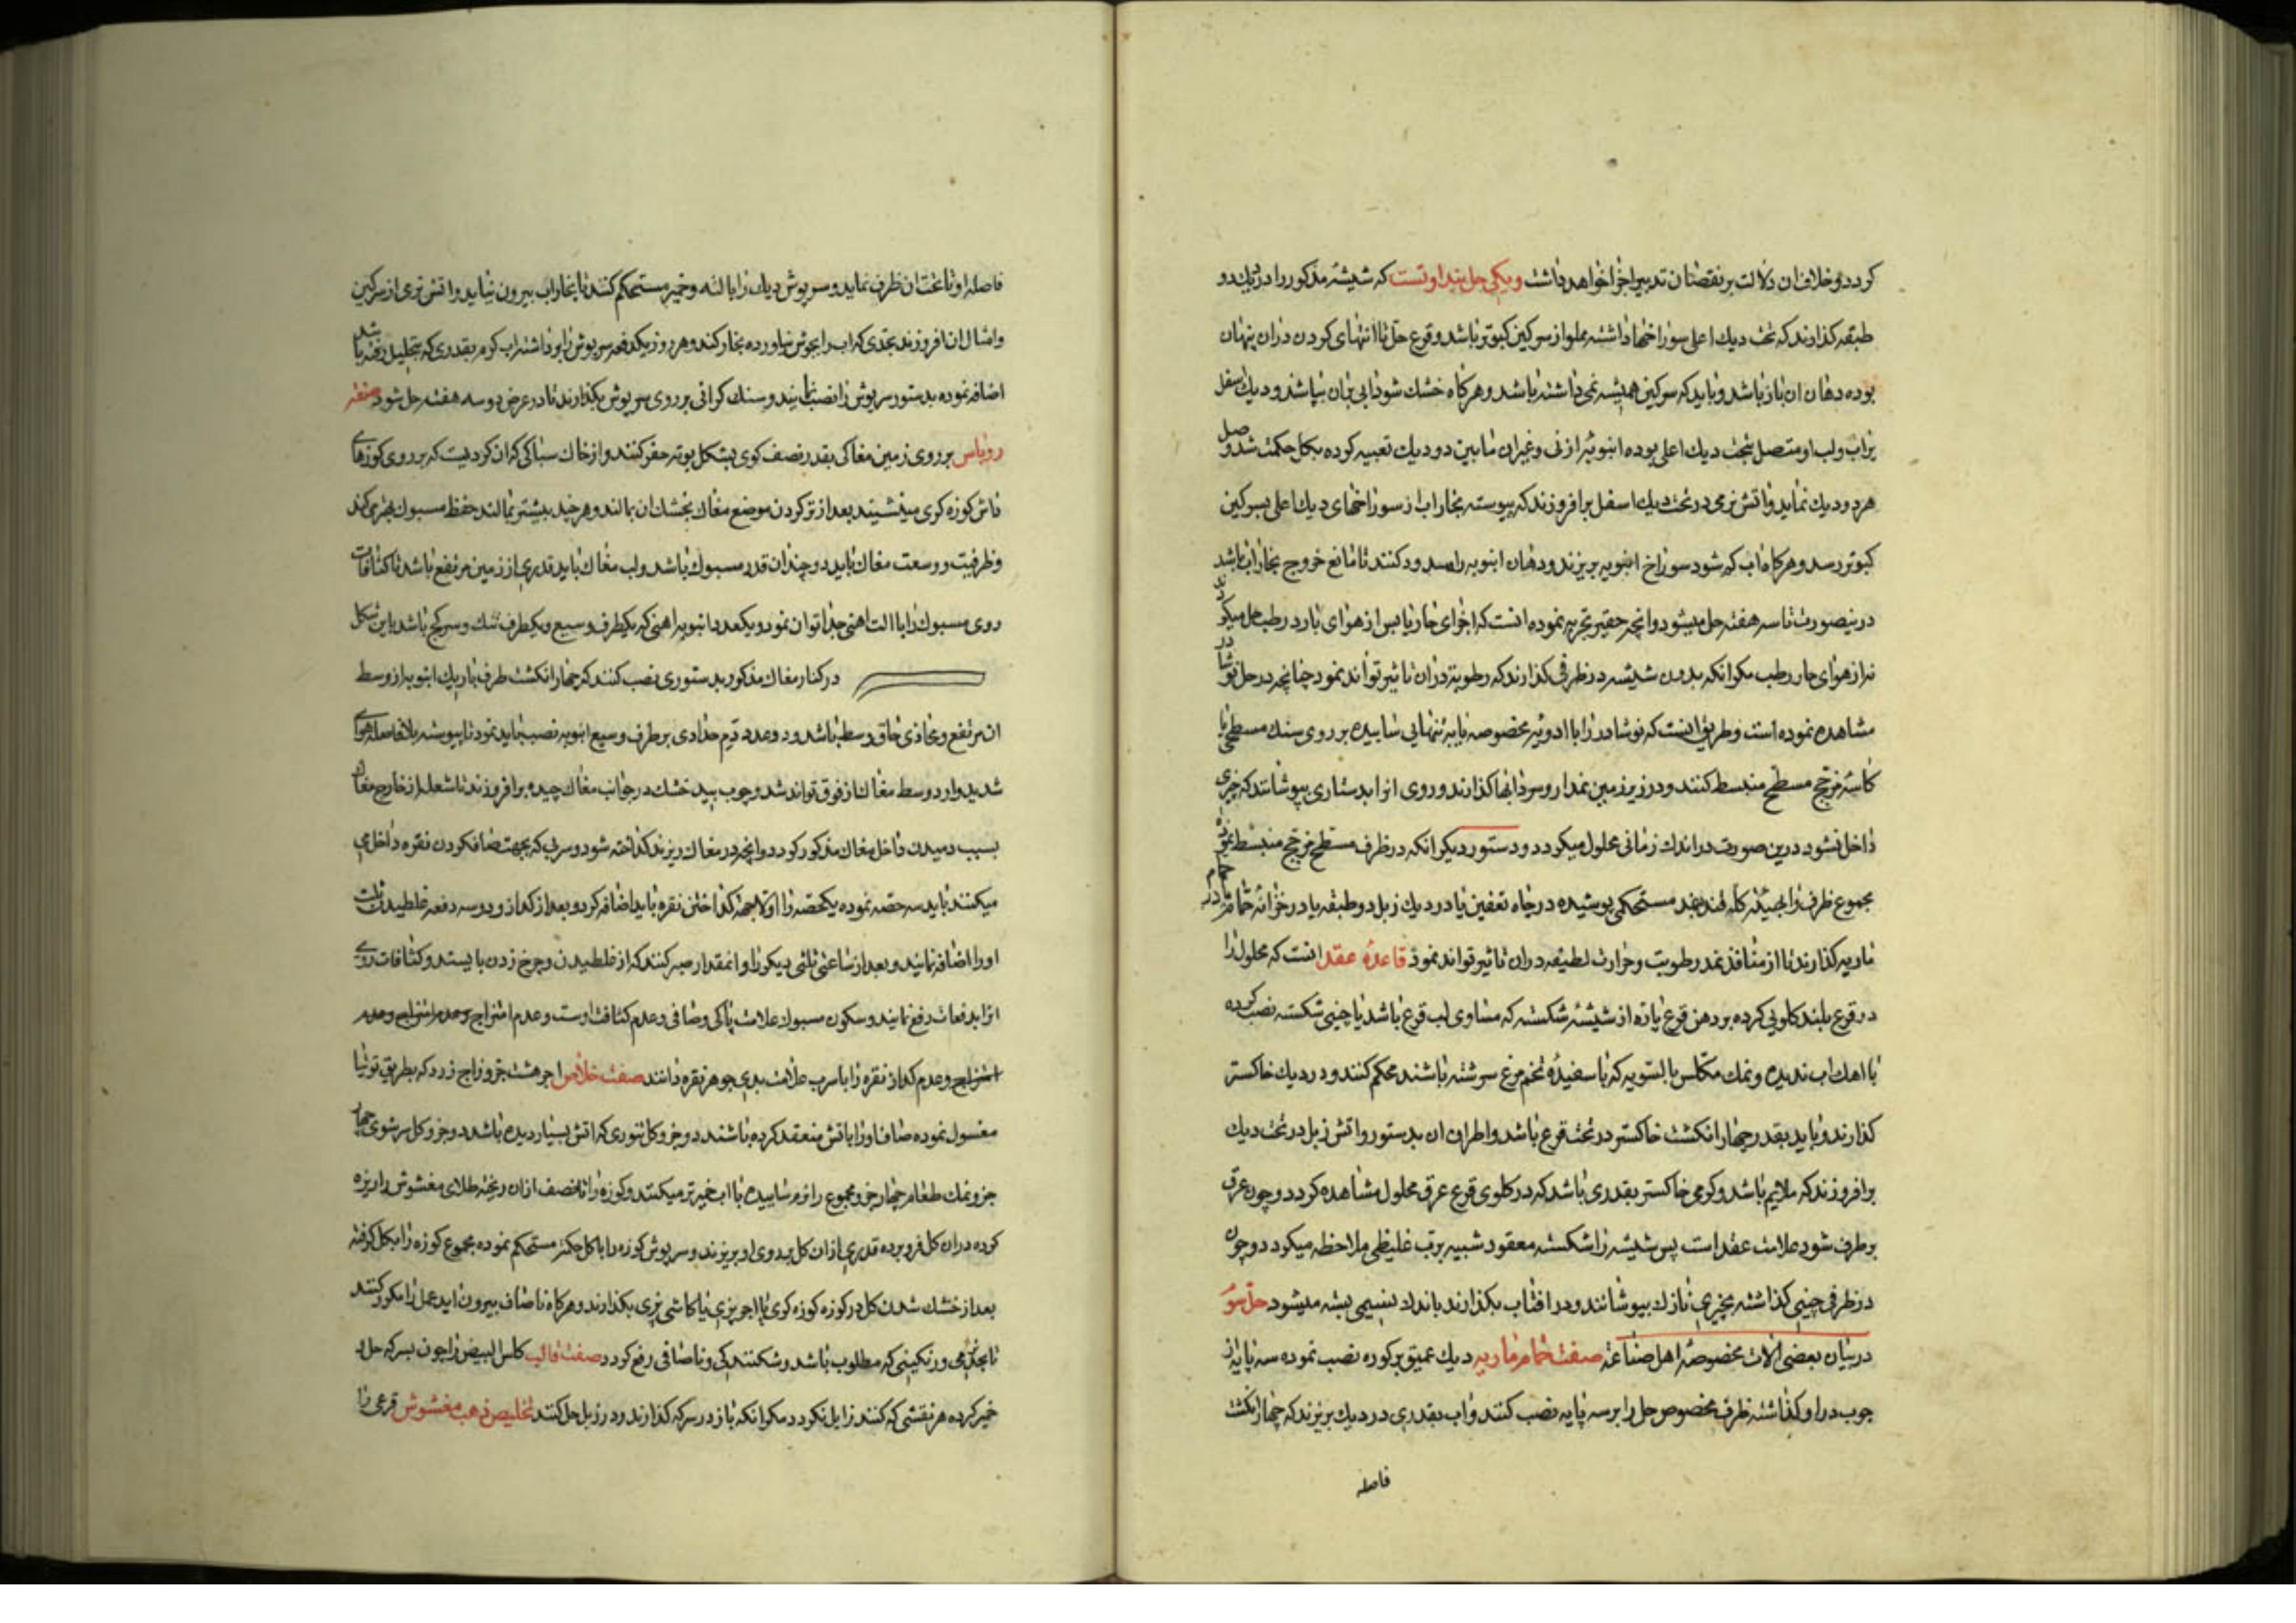 کردد و خلاف ان دلالت بر نقصان تدبیر اجزا خواهد داشت ویکی حل بنداوتست که شیشهٔ مذکور را در دیك دو
طبقه کذارند که تحت دیك اعلی سوراخها داشته مملو از سرکین کبوتر باشد و قرع حل تا انتهای کردن دران پنهان
بوده دهان ان باز باشد و باید که سرکین همیشه نمی داشته باشد و هرکاه خشك شود ابی بران بپاشند و دیك اسفل
پراب و لب او متصل بتحت دیك اعلی بوده انبوبهٔ از نی و غیران مابین دو دیك تعبیه کرده بکل حکمت شد وصل
هر دو دیك نماید و اتش نرمی در تحت دیك اسفل برافروزند که پیوسته بخار اب از سوراخهای دیك اعلی بسرکین
کبوتر رسد و هرکاه اب کم شود سوراخ انبوبه بریزند و دهان انبوبه را مسدود کنند تا مانع خروج بخار اب باشد
درینصورت تا سه هفته حل میشود و انچه حقیر تجربه نموده انست که اجزای حار یابس از هوای بارد رطب حل میکردد
نه از هوای حار رطب مکر انکه بدون شیشه در ظرفی کذارند که رطوبة دران تاثیر تواند نمود چنانچه در حل نوشادر
مشاهده نموده است و طریق انست که نوشادر را با ادویهٔ مخصوصه یا به تنهایی ساییده بر روی سنك مسطحی یا
کاسهٔ مزجج مسطح منبسط کنند و در زیرزمین نمدار و سردابها کذارند و روی انرا بدستاری بپوشانند که چیزی
داخل نشود درین صورت در اندك زمانی محلول میکردد و دستور دیکر انکه در ظرف مسطح مزجج منبسط نموده
مجموع ظرف را بهیئة کله قند بنمد مستحکمی پوشیده در چاه تعفین یا در دیك زبل دو طبقه یا در خزانهٔ حمام یا در حمام
ماریه کذارند تا از منافذ نمد رطوبت و حرارت لطیفه دران تاثیر تواند نمود قاعدهٔ عقد انست که محلول را
در قرع بلند کلویی کرده بر دهن قرع پارهٔ از شیشهٔ شکسته که مساوی لب قرع باشد یا چینی شکسته نصب کرده
با اهك اب ندیده و نمك مکلس بالسویه که با سفیدهٔ تخم مرغ سرشته باشند محکم کنند و در دیك خاکستر
کذارند و باید بقدر چهار انکشت خاکستر در تحت قرع باشد و اطراف ان بدستور و اتش زبل در تحت دیك
برافروزند که ملایم باشد و کرمی خاکستر بقدری باشد که در کلوی قرع عرق محلول مشاهده کردد و چون عرق
برطرف شود علامت عقد است پس شیشه را شکسته معقود شبیه برب غلیظی ملاحظه میکردد و چون
در ظرف چینی کذاشته بچیزی نازك بپوشانند و در افتاب بکذارند باندك نسیمی بسته میشود حل سوم
در بیان بعضی الات مخصوصهٔ اهل صناعة صفت حمام ماریه دیك عمیق بر کوره نصب نموده سه پایهٔ از
چوب در او کذاشته ظرف مخصوص حل را بر سه پایه نصب کنند و اب بقدری در دیك بریزند که چهار انکشت
فاصله
فاصلهٔ او تا تحت ان ظرف نماید و سرپوش دیك را با لته و خمیر مستحکم کنند تا بخار اب بیرون نیاید و اتش نرمی از سرکین
و امثال ان افروزند بحدی که اب را بجوش نیاورده بخار کند و هر روز یکدفعه سرپوش را برداشته اب کرم بقدری که بتحلیل رفته باشد
اضافه نموده بدستور سرپوش را نصب نمایند و سنك کرانی بر روی سرپوش بکذارند تا در عرض دو سه هفته حل شود صفة
روباس بر روی زمین مغاکی بقدر نصف کوی بشکل بوته حفر کنند و از خاك سباکی که ان کردیست که بر روی کوزهای
داش کوزه کری مینشیند بعد از تر کردن موضع مغاك بخشك ان بمالند و هر چند بیشتر بمالند حفظ مسبوك بهتر میکند
و ظرفیت و وسعت مغاك باید دو چندان قدر مسبوك باشد و لب مغاك باید قدری از زمین مرتفع باشد تا کثافات
روی مسبوك را با الت اهنی جدا توان نمود و یکعدد انبوبه اهنی که یکطرف وسیع و یکطرف تنك و سرکج باشد باین شکل
در کنار مغاك مذکور بدستوری نصب کنند که چهار انکشت طرف باریك انبوبه از وسط
ان مرتفع و محاذی حاق وسط باشد و دو عدد دم حدادی بر طرف وسیع انبوبه نصب باید نمود تا پیوسته بلافاصله هوای
شدید وارد وسط مغاك از فوق تواند شد و چوب بید خشك در جوانب مغاك چیده برافروزند تا شعله از خارج مغاك
بسبب دمیدن داخل مغاك مذکور کردد و انچه در مغاك ریزند کداخته شود و سربی که بجهت صاف کردن نقره داخل می
میکنند باید سه حصه نموده یکحصه را اولا بجهة کداختن نقره باید اضافه کرد و بعد از کداز و دو سه دفعه غلطیدن ثلث
اورا اضافه نمایند و بعد از ساعتی ثلثی دیکر را و انمقدار صبر کنند که از غلطیدن و چرخ زدن بایستد و کثافات روی
انرا بدفعات رفع نمایند و سکون مسبوك علامت پاکی و صافی و عدم کثافت اوست و عدم امتزاج و عدم امتزاج و عدم
امتزاج و عدم کداز نقره را با سرب علامت بدی جوهر نقره دانند صفت خلاص اجر هشت جزو زاج زرد که بطریق توتیا
مغسول نموده صاف او را باتش منعقد کرده باشند دو جزو کل تنوری که اتش بسیار دیده باشد دو جزو کل سرشوی چهار
جزو نمك طعام چهار جزو مجموع را نرم ساییده با اب خمیر تر میکنند و کوزه را تا نصف ازان ریخته طلای مغشوش را ریزه
کرده دران کل فرو برده قدری ازان کل بر روی او بریزند و سرپوش کوزه را با کل حکمة مستحکم نموده مجموع کوزه را بکل کرفته
بعد از خشك شدن کل در کوزه کوزه کری یا اجر پزی یا کاشی پزی بکذارند و هرکاه ناصاف بیرون اید عمل را مکرر کنند
تا بحد نرمی و رنکینی که مطلوب باشد و شکنندکی و ناصافی رفع کردد صفت قالب کلس البیض را چون بسرکه حل
خمیر کرده هر نقشی که کنند زایل نکردد مکر انکه باز در سرکه کذارند و در زبل حل کنند تخلیص ذهب مغشوش قرعی را